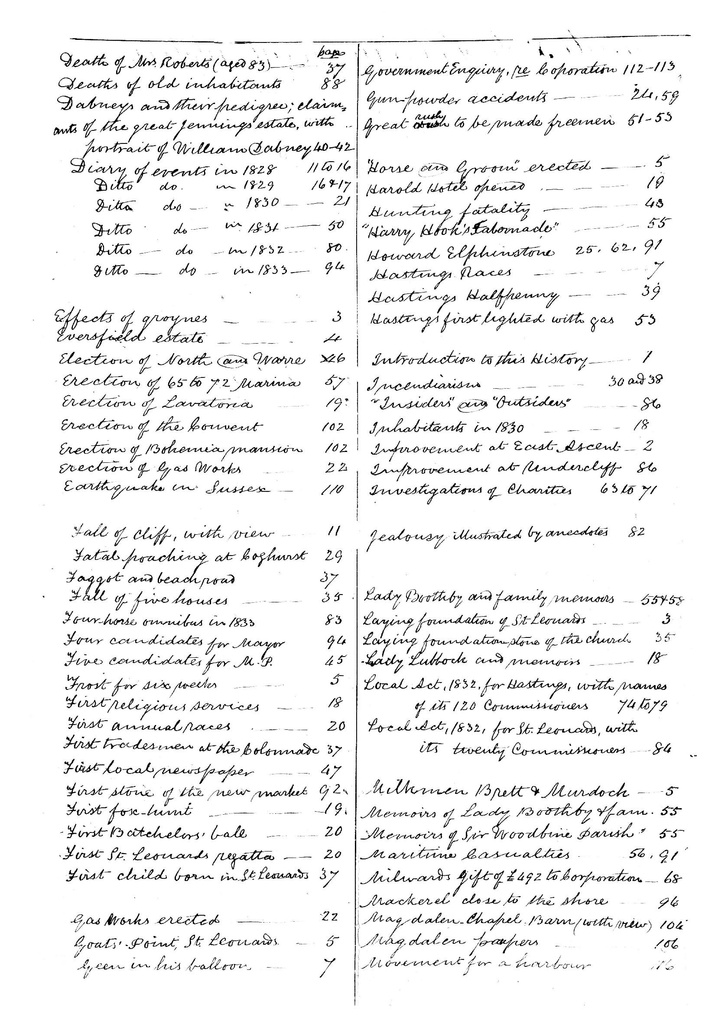 page
Deaths of Mrs Roberts (aged 83) — 37
Deaths of old inhabitants 88
Dabneys and their pedigree; claim-
ants of the great Jennings estate, with
portrait of William Dabney 40-42
Diary of events in 1828 11 to 16
Ditto do. in 1829 16 & 17
Ditto do — " 1830 — 21
Ditto do — in 1831 — 50
Ditto — do — in 1832 — 80
Ditto — do — in 1833 — 94
Effects of groynes — — 3
Eversfield estate — — 4
Election of North and Warre 46
Erection of 65 to 72 Marina 57
Erection of Lavatoria — 19
Erection of the Convent 102
Erection of Bohemia mansion 102
Erection of Gas Works — 22
Earthquake in Sussex — 110
Fall of cliff, with view — 11
Fatal poaching at Coghurst 29
Faggot and beach road 37
Fall of five houses — 35
Four horse omnibus in 1833 83
Four candidates for Mayor 94
Five candidates for M.P. 45
Frost for six weeks — 5
First religious services — 18
First annual races — 20
First tradesmen at the Colonnade 37
First local newspaper — 47
First stone of the new market 92
First fox-hunt — — 19
First Batchelors' ball — 20
First St. Leonards regatta — 20
First child born in St. Leonards 37
Gas Works erected — 22
Goats' Point, St Leonards — 5
Green in his balloon — 7
Government Enquiry, re Coporation 112-113
Gun-powder accidents — 24, 59
Great rush to be made freemen 51-53
"Horse and Groom" erected — 5
Harold Hotel opened — 19
Hunting fatality — 43
"Harry Hook's Tabornade" — 55
Howard Elphinstone 25, 62, 91
Hastings Races — 7
Hastings Halfpenny — 39
Hastings first lighted with gas 53
Introduction to this History — 1
Incendiarism — 30 and 38
"Insiders" and "Outsiders" — 86
Inhabitants in 1830 — 18
Improvement at East Ascent — 2
Improvement at Undercliff 86
Investigations of Charities 63 to 71
Jealousy illustrated by anecdotes 82
Lady Boothby and family memoirs — 55 & 58
Laying foundation of St Leonards — 3
Laying foundation-stone of the church 35
Lady Lubbock and memoirs — 18
Local Act, 1832, for Hastings, with names
of its 120 Commissioners 74 to 79
Local Act, 1832, for St. Leonards, with
its twenty Commissioners — 84
Milkmen Brett & Murdock — 5
Memoirs of Lady Boothby & fam. 55
Memoirs of Sir Woodbine Parish 55
Maritime Casualties 56, 91
Milwards gift of £492 to Corporation — 68
Mackerel close to the shore — 96
Magdalen Chapel Barn (with view) 106
Magdalen paupers — 106
Movement for a harbour